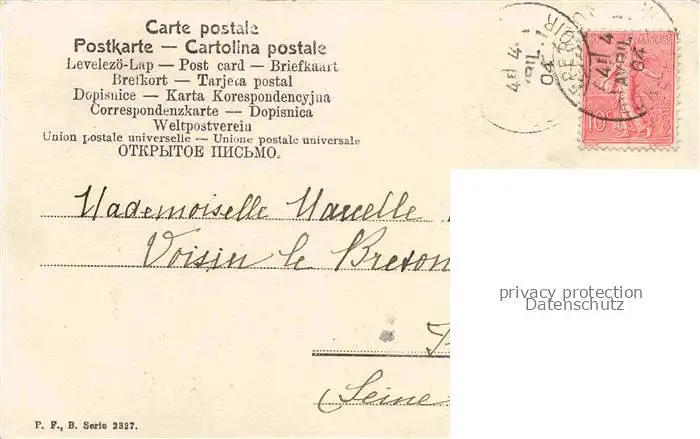 Carte postale
Postkarte — Cartolina postale
Levelező-Lap — Post card — Briefkaart
Brefkort — Tarjeta postal
Dopisnice — Karta Korespondencyjna
Correspondenzkarte — Dopisnica
Weltpostverein
Union postale universelle — Unione postale universale
ОТКРЫТОЕ ПИСЬМО.
4E 4
AVRIL
04
10
Mademoiselle Marcelle
Voisin le Breton
privacy protection
Datenschutz
Seine
P. F., B. Serie 2327.